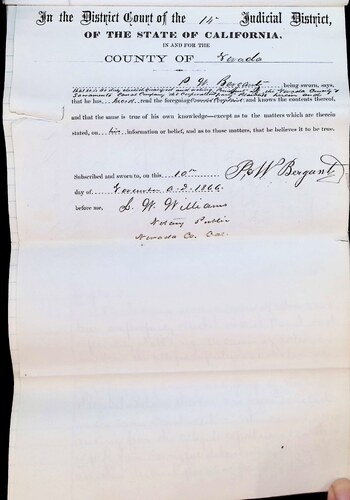 In the District Court of the 14th Judicial District,
OF THE STATE OF CALIFORNIA.
IN AND FOR THE
COUNTY OF Nevada
P. W. being sworn, says,
that he is the duly elected and acting President of the Nevada County &
Sacramento Canal Company the Corporation plaintiff herein and
that he has heard read the foregoing Complaint and knows the contents thereof,
and that the same is true of his own knowledge—except as to the matters which are therein
stated, on his information or belief, and as to those matters, that he believes it to be true.
Subscribed and sworn to, on this 10th P W
day of November A.D. 1866
before me,
S. W. Williams
Notary Public
Nevada Co. Cal.